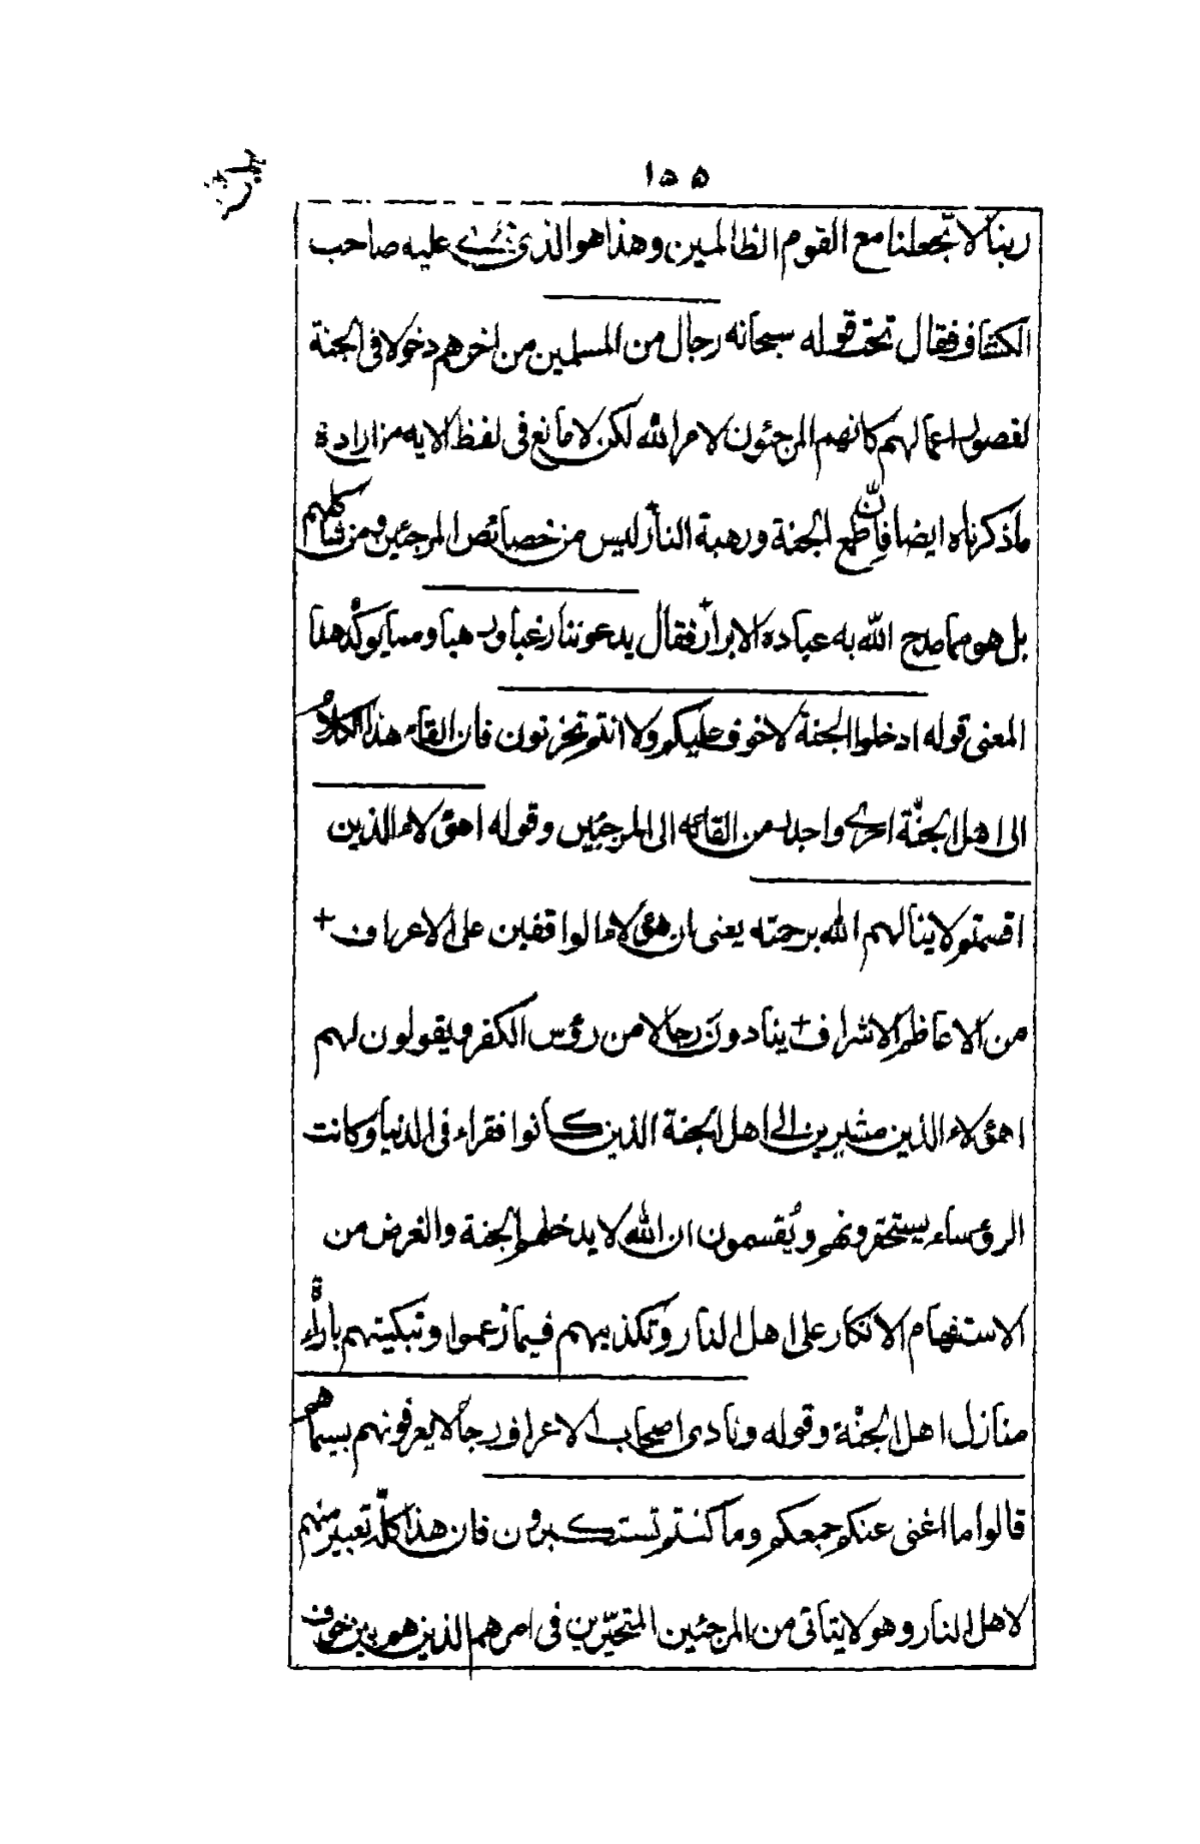 ١٥٥
ربنا لا تجعلنا مع القوم الظالمين وهذا هو الذى عليه صاحب
الكشاف فقال تحت قوله سبحانه رجال من المسلمين من اخرهم دخولا فى الجنة
لقصور اعمالهم كانهم المرجئون لامر الله لكن لا مانع فى لفظ الايه من ارادة
ما ذكرناه ايضا فانّ طمع الجنة ورهبة النار ليس من خصائص المرجئين ومن شاكلهم
بل هو مما مدح الله به عباده الابرار فقال يدعوننا رغبا ورهبا ومما يوكّد هذا
المعنى قوله ادخلوا الجنة لا خوف عليكم ولا انتم تحزنون فان القاء هذا الكلام
الى اهل الجنّة احرى واجدر من القائه الى المرجئين وقوله اهؤلاء الذين
اقسمتم لا ينالهم الله برحمته يعنى ان هؤلاء الواقفين على الاعراف +
من الاعاظم الاشراف + ينادون رجالا من رؤس الكفر ويقولون لهم
اهؤلاء الذين مشيرين الى اهل الجنة الذين كانوا فقراء فى الدنيا وكانت
الرؤساء يستحقرونهم ويُقسمون ان الله لا يدخلهم الجنة والغرض من
الاستفهام الانكار على اهل النار وتكذيبهم فيما زعموا وتبكيتهم باراء
منازل اهل الجنّة وقوله ونادى اصحاب الاعراف رجالا يعرفونهم بسيماهم
قالوا ما اغنى عنكم جمعكم وما كنتم تستكبرون فان هذا كلّه تعيير منهم
لاهل النار وهو لا يتاتى من المرجئين المتحيّرين فى امرهم الذين هم بين خوف